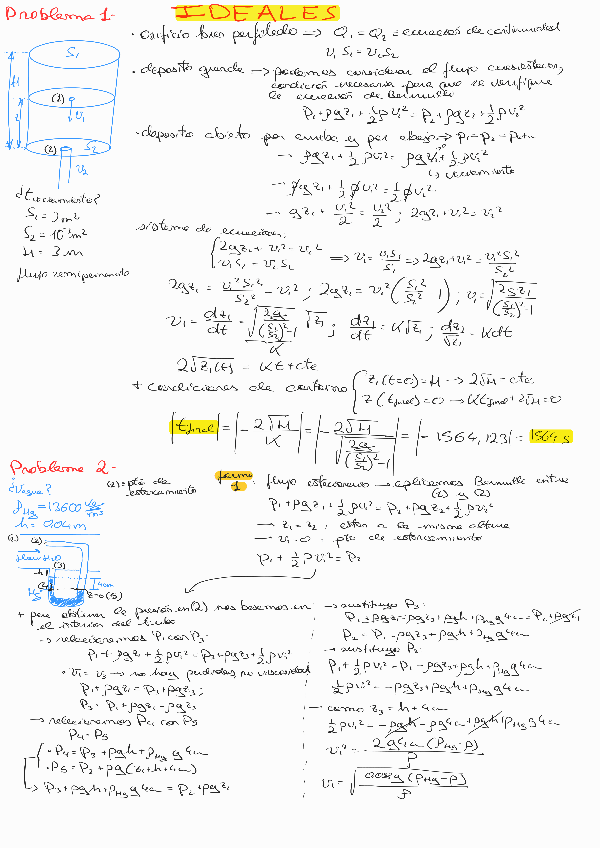 Problema 1-
IDEALES
· orificio bien perfilado → Q₁ = Q₂ = ecuación de continuidad
v₁ S₁ = v₂ S₂
· deposito grande → podemos considerar el flujo cuasiestacion,
condición necesaria para que se verifique
la ecuación de Bernoulli
P₁ + ρgz₁ + ½ρv₁² = P₂ + ρgz₂ + ½ρv₂²
· deposito abierto por arriba y por abajo → P₁ = P₂ = Patm
→ ρgz₁ + ½ρv₁² = ρgz₂ + ½ρv₂²
→ vaciamiento
→ ρgz₁ + ½ρv₁² = ½ρv₂²
→ gz₁ + v₁²/2 = v₂²/2 ; 2gz₁ + v₁² = v₂²
S₁
(1)
v₁
(2)
S₂
v₂
H
z
¿t vaciamiento?
S₁ = 2m²
S₂ = 10⁻³m²
H = 3 m
flujo semipermanente
sistema de ecuaciones
2gz₁ + v₁² = v₂²
v₁S₁ = v₂S₂
⇒ v₂ = v₁S₁/S₂ ⇒ 2gz₁ + v₁² = v₁²S₁²/S₂²
2gz₁ = v₁²S₁²/S₂² - v₁² ; 2gz₁ = v₁²(S₁²/S₂² - 1) ; v₁ = √(2gz₁/((S₁/S₂)² - 1))
v₁ = dz₁/dt = √(2g/((S₁/S₂)² - 1)) √z₁ ; dz₁/dt = K√z₁ ; dz₁/√z₁ = Kdt
K
2√z₁(t) = Kt + cte
+ condiciones de contorno
z₁(t=0) = H → 2√H = cte
z(t final) = 0 → Kt final + 2√H = 0
|t final| = |-2√H/K| = |-2√H/√(2g/((S₁/S₂)² - 1))| = |-1564,123| = 1564 s
Problema 2-
¿V agua?
ρHg = 13600 kg/m³
h = 0.04 m
(2) = pto de
estancamiento
forma
1
: flujo estacionario → aplicamos Bernoulli entre
(1) y (2)
P₁ + ρgz₁ + ½ρv₁² = P₂ + ρgz₂ + ½ρv₂²
→ z₁ = z₂ , estan a la misma altura
→ v₂ = 0 , pto de estancamiento
P₁ + ½ρv₁² = P₂
(1)
(2)
flow H₂O
(3)
h
4cm
(4)
z=0 (5)
Hg
+ para obtener la presión en (2) nos basamos en
el interior del tubo
→ relacionamos P₁ con P₃
P₁ + ρgz₁ + ½ρv₁² = P₃ + ρgz₃ + ½ρv₃²
· v₁ = v₃ → no hay perdidas, no viscosidad
P₁ + ρgz₁ = P₃ + ρgz₃ ;
P₃ = P₁ + ρgz₁ - ρgz₃
→ relacionamos P₄ con P₅
P₄ = P₅
· P₄ = P₃ + ρgh + ρHg g4cm
· P₅ = P₂ + ρg(z₁+h+4cm)
→ P₃ + ρgh + ρHg g4cm = P₂ + ρgz₁
→ sustituyo P₃
P₁ + ρgz₁ - ρgz₃ + ρgh + ρHg g4cm = P₂ + ρgz₁
P₂ = P₁ - ρgz₃ + ρgh + ρHg g4cm
→ sustituyo P₂
P₁ + ½ρv₁² = P₁ - ρgz₃ + ρgh + ρHg g4cm
½ρv₁² = -ρgz₃ + ρgh + ρHg g4cm
→ como z₃ = h + 4cm
½ρv₁² = -ρgh - ρg4cm + ρgh + ρHg g4cm
v₁² = 2g4cm (ρHg - ρ)/ρ
v₁ = √(0.08g (ρHg - ρ)/ρ)